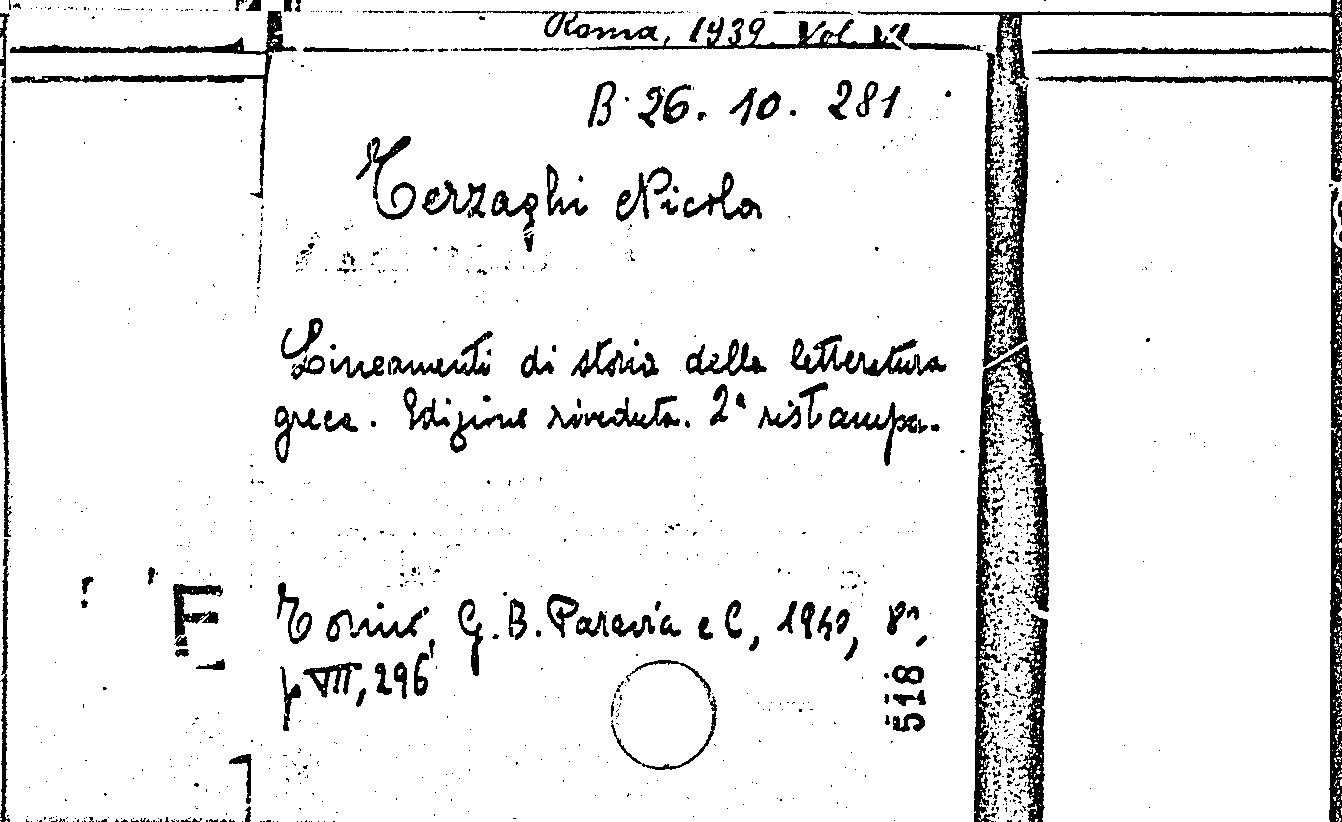 Roma, 1939. Vol. VI
B. 26. 10. 281
Terzaghi Nicola
Lineamenti di storia della letteratura
greca. Edizione riveduta. 2ª ristampa.
Torino, G. B. Paravia e C, 1940, 8º,
p VIII, 296
518
E